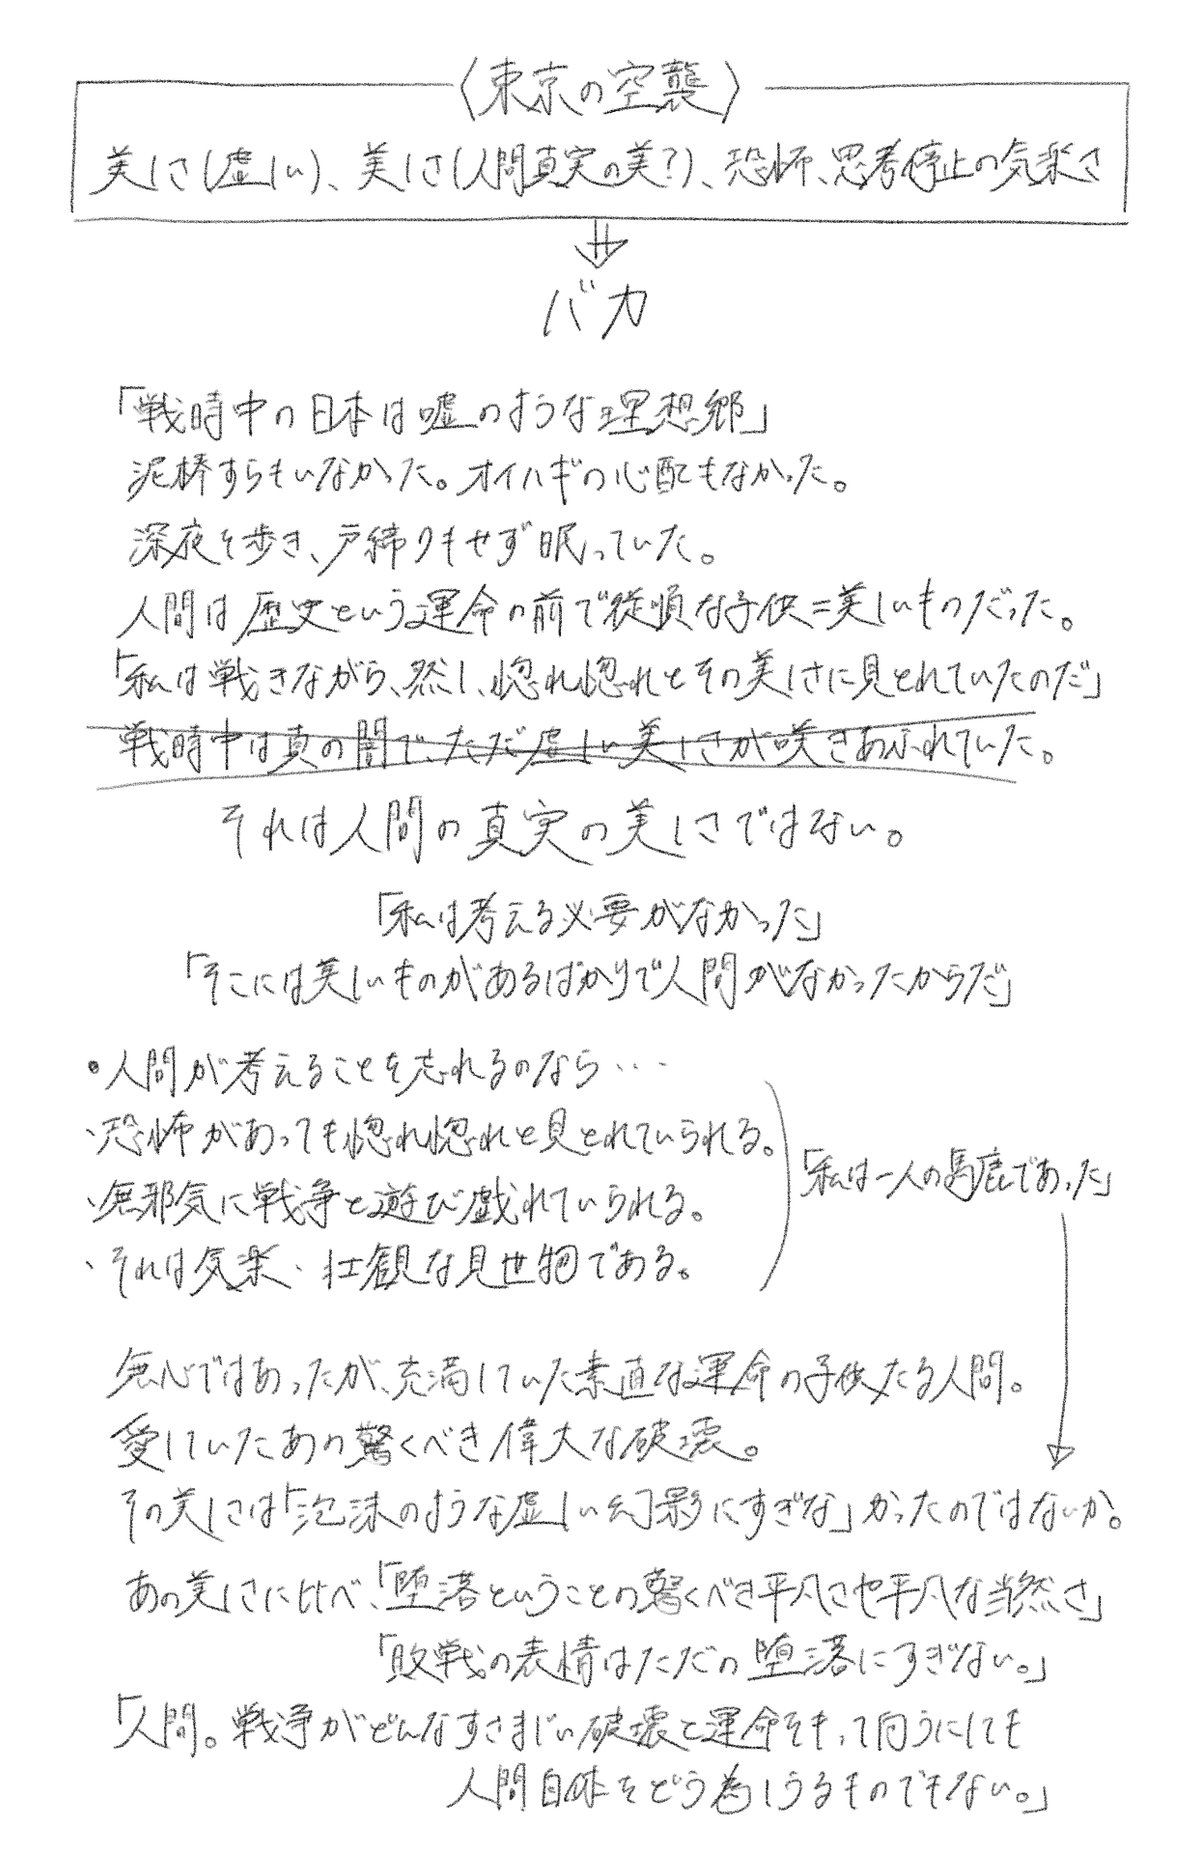 〈東京の空襲〉
美しさ(虚しい)、美しさ(人間真実の美?)、恐怖、思考停止の気楽さ
バカ
「戦時中の日本は嘘のような理想郷」
泥棒すらもいなかった。オイハギの心配もなかった。
深夜を歩き、戸締りもせず眠っていた。
人間は歴史という運命の前で従順な子供=美しいものだった。
「私は戦きながら、然し、惚れ惚れとその美しさに見とれていたのだ」
戦時中は真の闇で、ただ虚しい美しさが咲きあふれていた。
それは人間の真実の美しさではない。
「私は考える必要がなかった」
「そこには美しいものがあるばかりで人間がなかったからだ」
・人間が考えることを忘れるのなら…
、恐怖があっても惚れ惚れと見とれていられる。
、無邪気に戦争と遊び戯れていられる。
、それは気楽、壮観な見世物である。
「私は一人の馬鹿であった」
無心ではあったが、充満していた素直な運命の子供たる人間。
愛していたあの驚くべき偉大な破壊。
その美しさは「泡沫のような虚しい幻影にすぎな」かったのではないか。
あの美しさに比べ、「堕落ということの驚くべき平凡さや平凡な当然さ」
「敗戦の表情はただの堕落にすぎない。」
「人間。戦争がどんなすさまじい破壊と運命をもって向うにしても
人間自体をどう為しうるものでもない。」